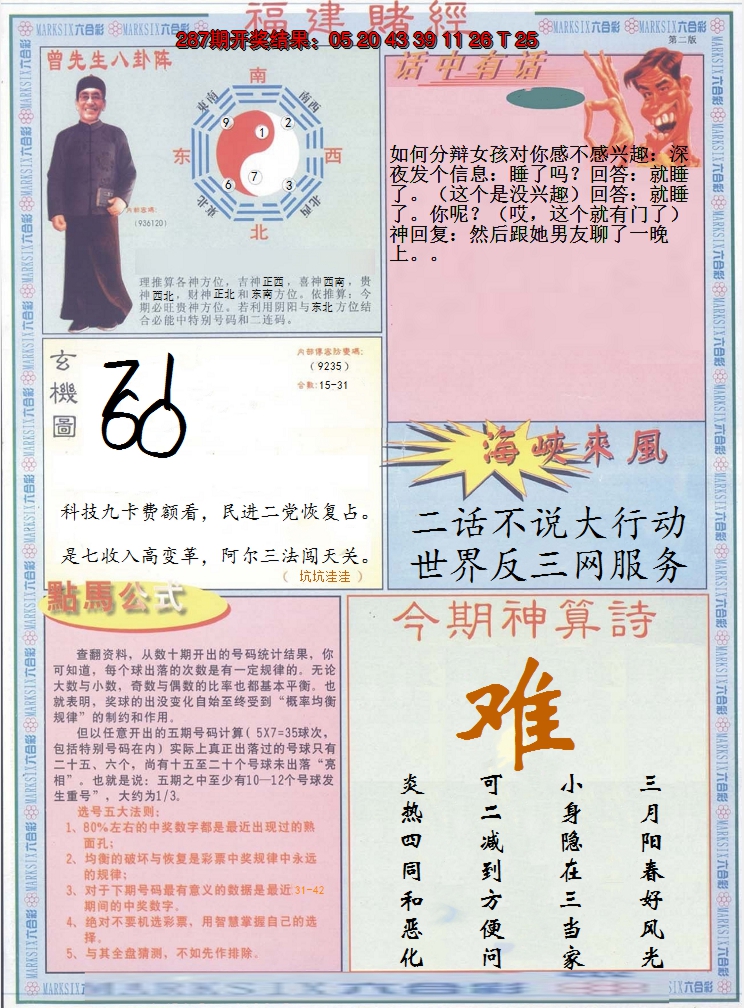 福建賭經
287期开奖结果：05 20 43 39 11 26 T 25
第二版
MARKSIX六合彩
曾先生八卦阵
南
东南
南西
9
1
2
东
西
6
7
3
东北
北西
北
内部密碼：
（936120）
理推算各神方位，吉神正西，喜神西南，贵
神西北，财神正北和东南方位。依推算：今
期必旺贵神方位。若利用阴阳与东北方位结
合必能中特别号码和二连码。
话中有话
如何分辩女孩对你感不感兴趣：深
夜发个信息：睡了吗？回答：就睡
了。（这个是没兴趣）回答：就睡
了。你呢？（哎，这个就有门了）
神回复：然后跟她男友聊了一晚
上。。
玄機圖
内部傳密防變碼：
（9235）
合数：15-31
71
60
科技九卡费额看，民进二党恢复占。
是七收入高变革，阿尔三法闯天关。
（ 坑坑洼洼 ）
海峽來風
二话不说大行动
世界反三网服务
點馬公式
查翻资料，从数十期开出的号码统计结果，你
可知道，每个球出落的次数是有一定规律的。无论
大数与小数，奇数与偶数的比率也都基本平衡。也
就表明，奖球的出没变化自始至终受到“概率均衡
规律”的制约和作用。
但以任意开出的五期号码计算（5X7=35球次，
包括特别号码在内）实际上真正出落过的号球只有
二十五、六个，尚有十五至二十个号球未出落“亮
相”。也就是说：五期之中至少有10—12个号球发
生重号”，大约为1/3。
选号五大法则：
1、80%左右的中奖数字都是最近出现过的熟
面孔；
2、均衡的破坏与恢复是彩票中奖规律中永远
的规律；
3、对于下期号码最有意义的数据是最近31-42
期间的中奖数字。
4、绝对不要机选彩票，用智慧掌握自己的选
择。
5、与其全盘猜测，不如先作排除。
今期神算詩
难
三月阳春好风光
小身隐在三当家
可二减到方便问
炎热四同和恶化